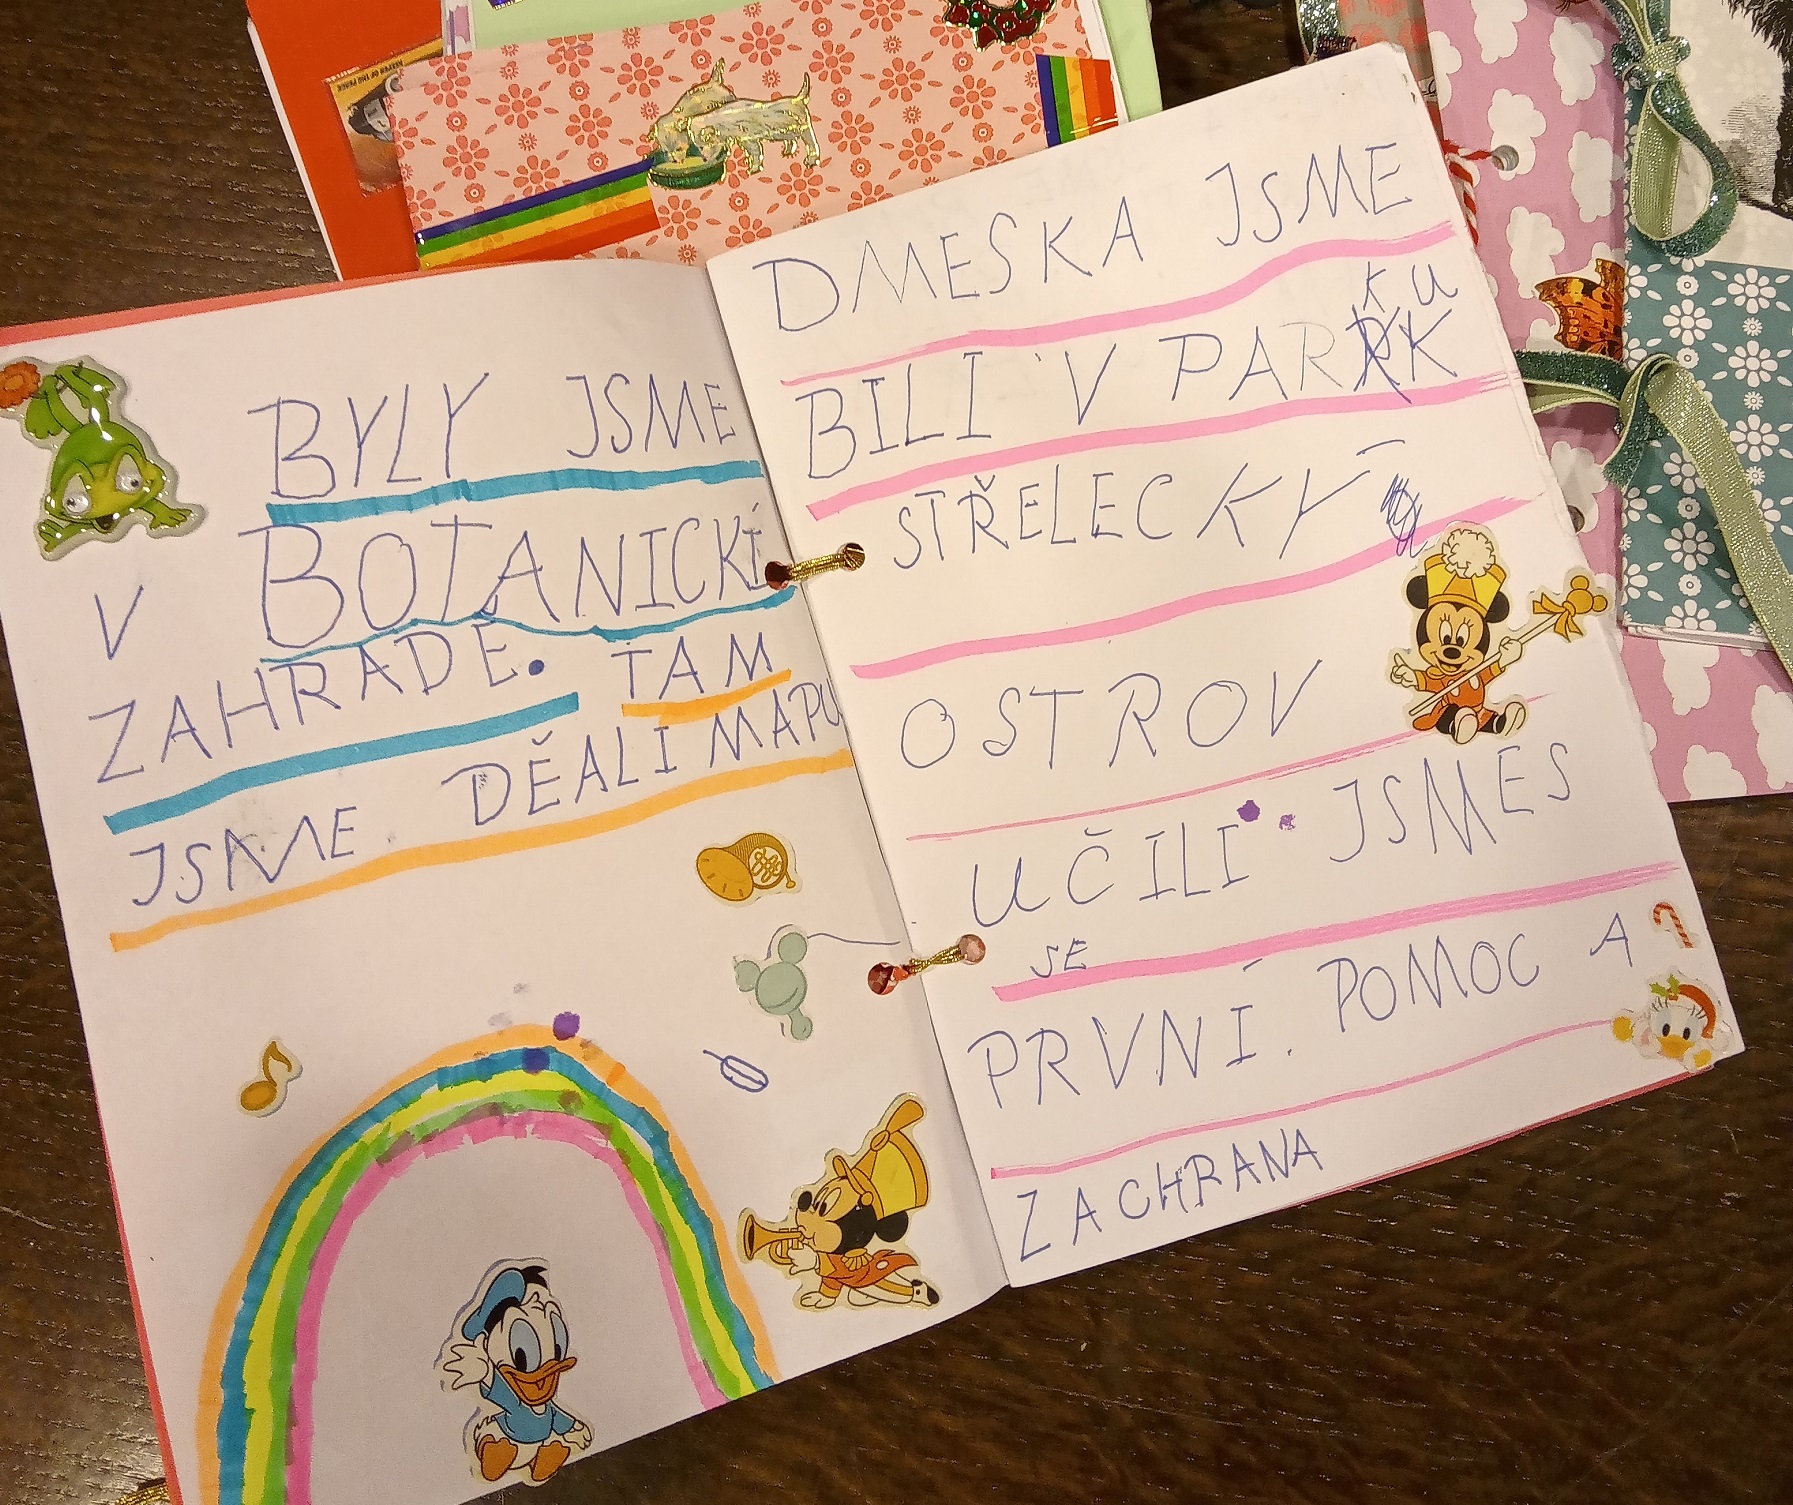 BYLY JSME
V BOTANICKÍ
ZAHRADĚ. TAM
JSME DĚALI MAPU
DMESKA JSME
BILI V PARK
KU
STŘELECKÝ
OSTROV
UČILI JSMES
SE
PRVNÍ. POMOC A
ZACHRANA